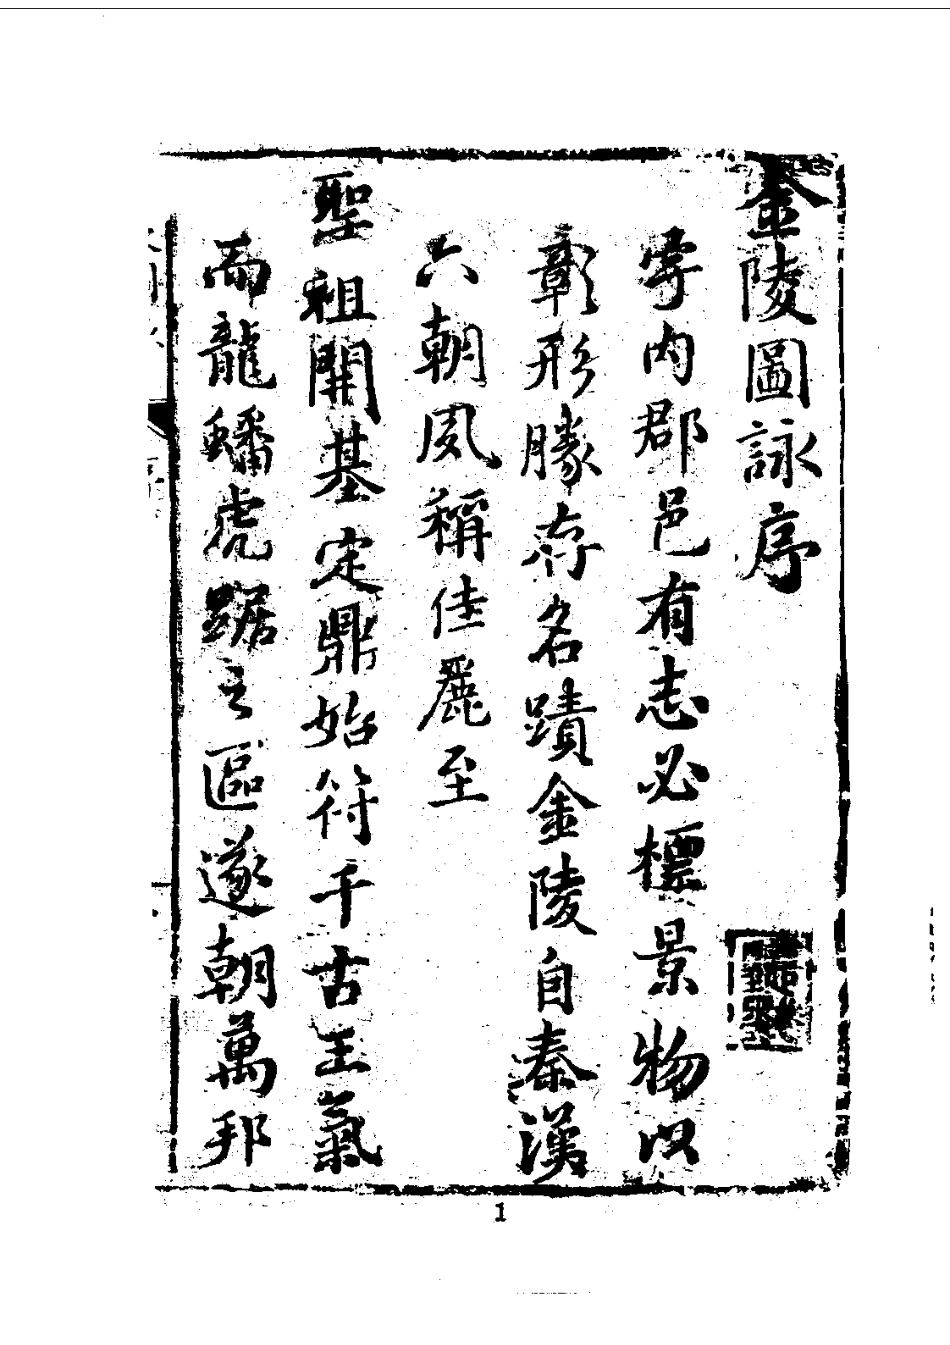 金陵圖詠序
宇内郡邑有志必標景物以
彰形勝存名蹟金陵自秦漢
六朝夙稱佳麗至
聖祖開基定鼎始符千古王氣
而龍蟠虎踞之區遂朝萬邦
1